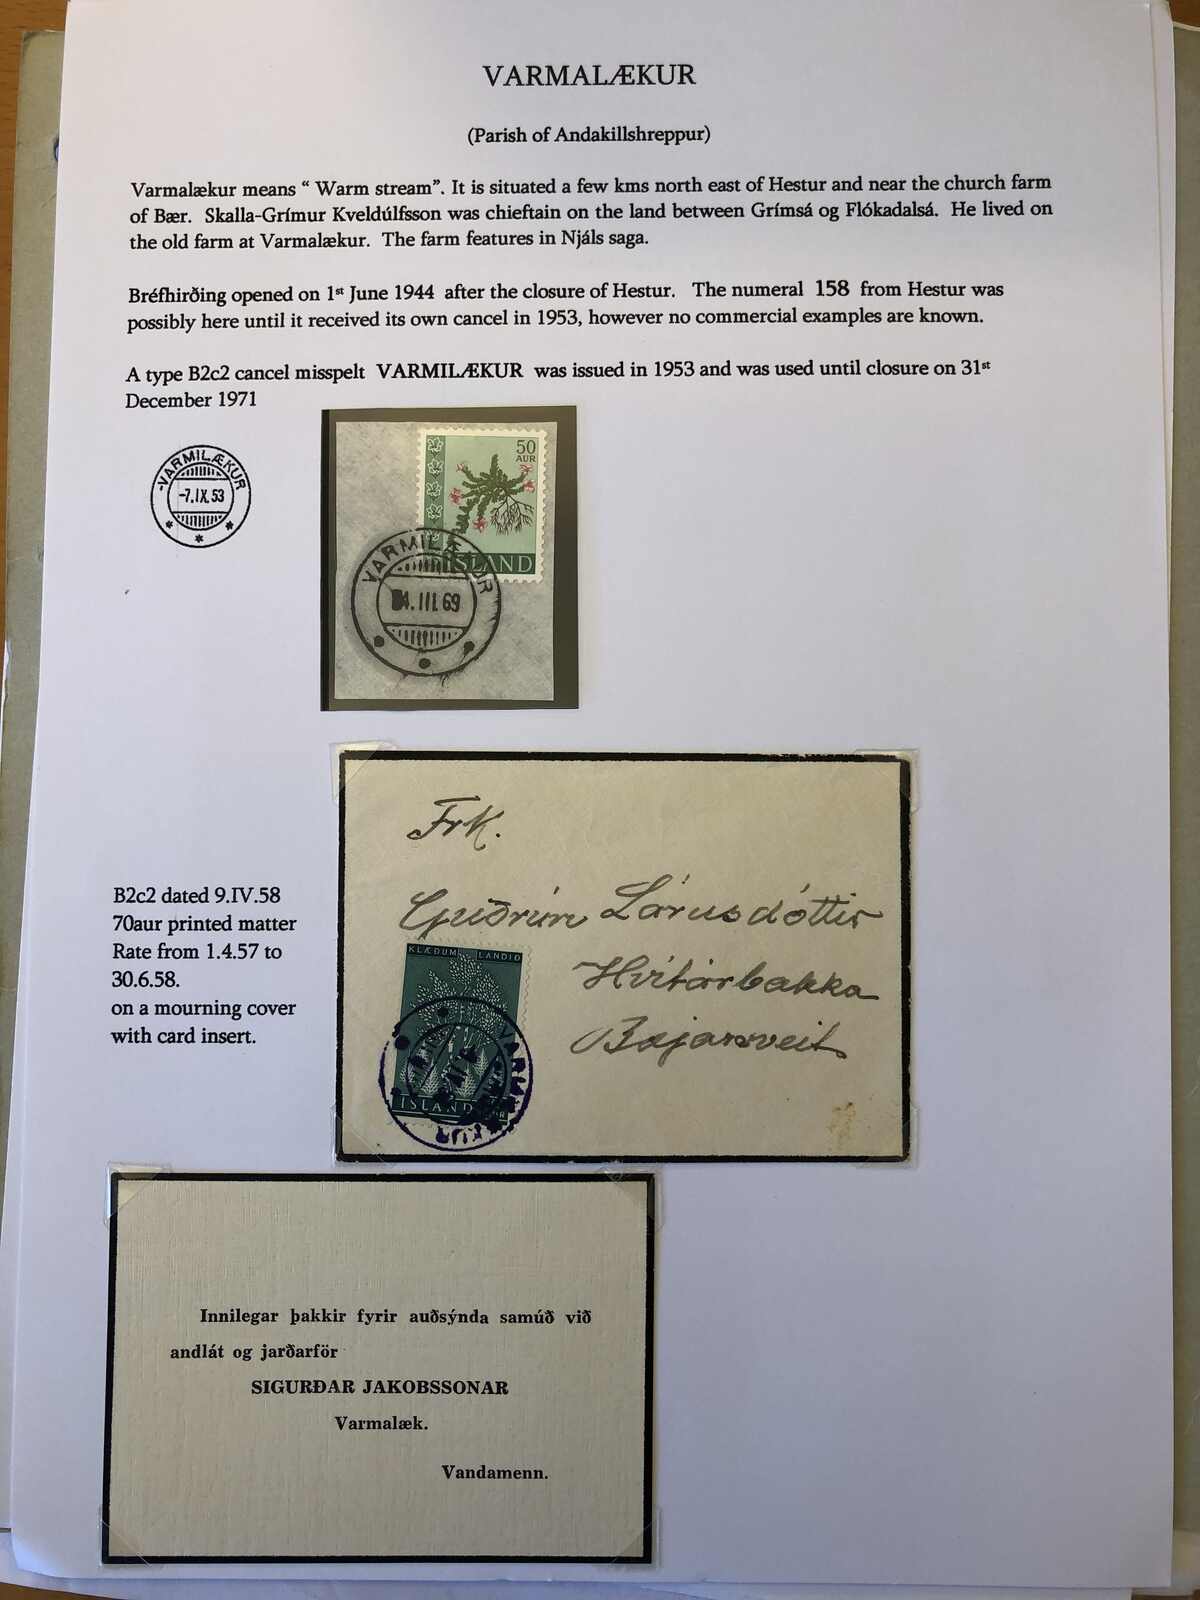 VARMALÆKUR
(Parish of Andakillshreppur)
Varmalækur means “ Warm stream”. It is situated a few kms north east of Hestur and near the church farm
of Bær. Skalla-Grímur Kveldúlfsson was chieftain on the land between Grímsá og Flókadalsá. He lived on
the old farm at Varmalækur. The farm features in Njáls saga.
Bréfhirðing opened on 1st June 1944 after the closure of Hestur. The numeral 158 from Hestur was
possibly here until it received its own cancel in 1953, however no commercial examples are known.
A type B2c2 cancel misspelt VARMILÆKUR was issued in 1953 and was used until closure on 31st
December 1971
VARMILÆKUR
-7.IX.53
50
AUR
ÍSLAND
VARMILÆKUR
.III.69
Frk.
Guðrún Lárusdóttir
Hvítárbakka
Bæjarsveit
KLÆÐUM LANDIÐ
ÍSLAND
B2c2 dated 9.IV.58
70aur printed matter
Rate from 1.4.57 to
30.6.58.
on a mourning cover
with card insert.
Innilegar þakkir fyrir auðsýnda samúð við
andlát og jarðarför
SIGURÐAR JAKOBSSONAR
Varmalæk.
Vandamenn.